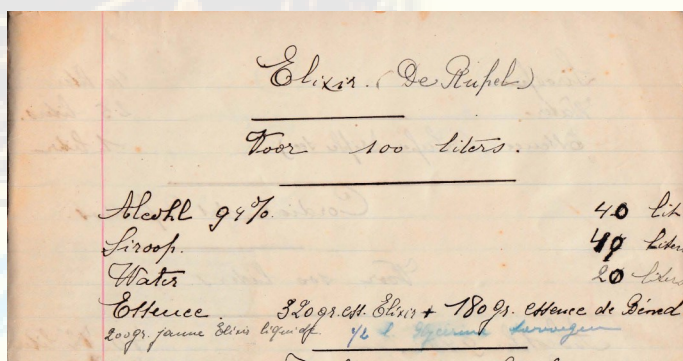 Elixir. (De Rupel.)
Voor 100 liters.
Alcohl 94%. 40 lit
Siroop. 40 liters
Water 20 liters
Essence. 320 gr. ess. Elixir + 180 gr. essence de Béned
200 gr. jaune Elixir liquide 1/2 l. Glycerine toevoegen